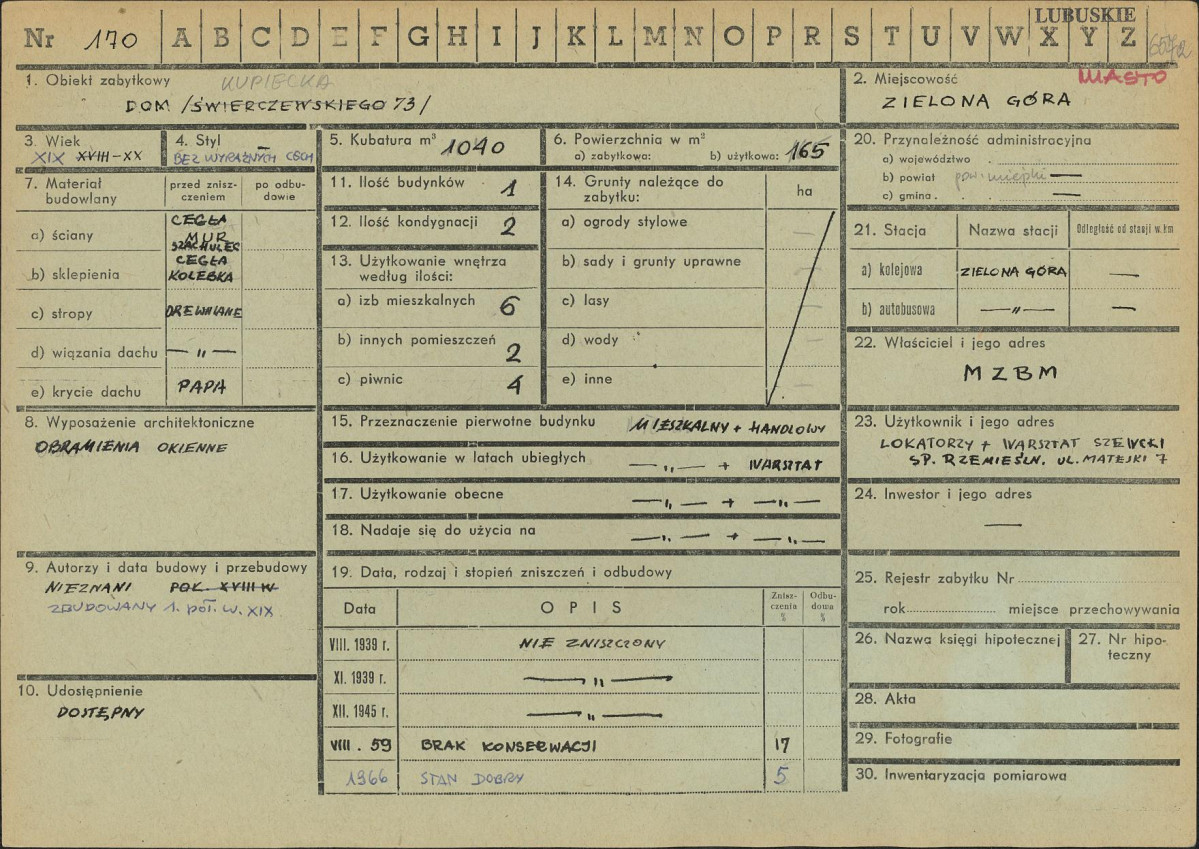 LUBUSKIE
Nr 170 A B C D E F G H I J K L M N O P R S T U V W X Y Z
1. Obiekt zabytkowy KUPIECKA
DOM /ŚWIERCZEWSKIEGO 73/
2. Miejscowość MIASTO
ZIELONA GÓRA
3. Wiek
XIX XVIII-XX
4. Styl —
BEZ WYRAŹNYCH CECH
5. Kubatura m³ 1040
6. Powierzchnia w m²
a) zabytkowa: b) użytkowa: 165
7. Materiał budowlany
przed znisz-
czeniem
po odbu-
dowie
a) ściany CEGŁA
MUR
SZACHULEC
b) sklepienia CEGŁA
KOLEBKA
c) stropy DREWNIANE
d) wiązania dachu — " —
e) krycie dachu PAPA
8. Wyposażenie architektoniczne
OBRAMIENIA OKIENNE
9. Autorzy i data budowy i przebudowy
NIEZNANI POŁ. XVIII W
ZBUDOWANY 1. poł. w. XIX
10. Udostępnienie
DOSTĘPNY
11. Ilość budynków 1
12. Ilość kondygnacji 2
13. Użytkowanie wnętrza
według ilości:
a) izb mieszkalnych 6
b) innych pomieszczeń 2
c) piwnic 4
14. Grunty należące do
zabytku:
ha
a) ogrody stylowe —
b) sady i grunty uprawne —
c) lasy —
d) wody
e) inne —
15. Przeznaczenie pierwotne budynku MIESZKALNY + HANDLOWY
16. Użytkowanie w latach ubiegłych — " — + WARSZTAT
17. Użytkowanie obecne — " — + — " —
18. Nadaje się do użycia na — " — + — " —
19. Data, rodzaj i stopień zniszczeń i odbudowy
Data OPIS Znisz-
czenia
% Odbu-
dowa
%
VIII. 1939 r. NIE ZNISZCZONY
XI. 1939 r. — " —
XII. 1945 r. — " —
VIII. 59 BRAK KONSERWACJI 17
1966 STAN DOBRY 5
20. Przynależność administracyjna
a) województwo
b) powiat pow. miejski —
c) gmina —
21. Stacja Nazwa stacji Odległość od stacji w km
a) kolejowa ZIELONA GÓRA —
b) autobusowa — " — —
22. Właściciel i jego adres
MZBM
23. Użytkownik i jego adres
LOKATORZY + WARSZTAT SZEWCKI
SP. RZEMIEŚLN. UL. MATEJKI 7
24. Inwestor i jego adres
—
25. Rejestr zabytku Nr
rok miejsce przechowywania
26. Nazwa księgi hipotecznej
27. Nr hipo-
teczny
28. Akta
29. Fotografie
30. Inwentaryzacja pomiarowa